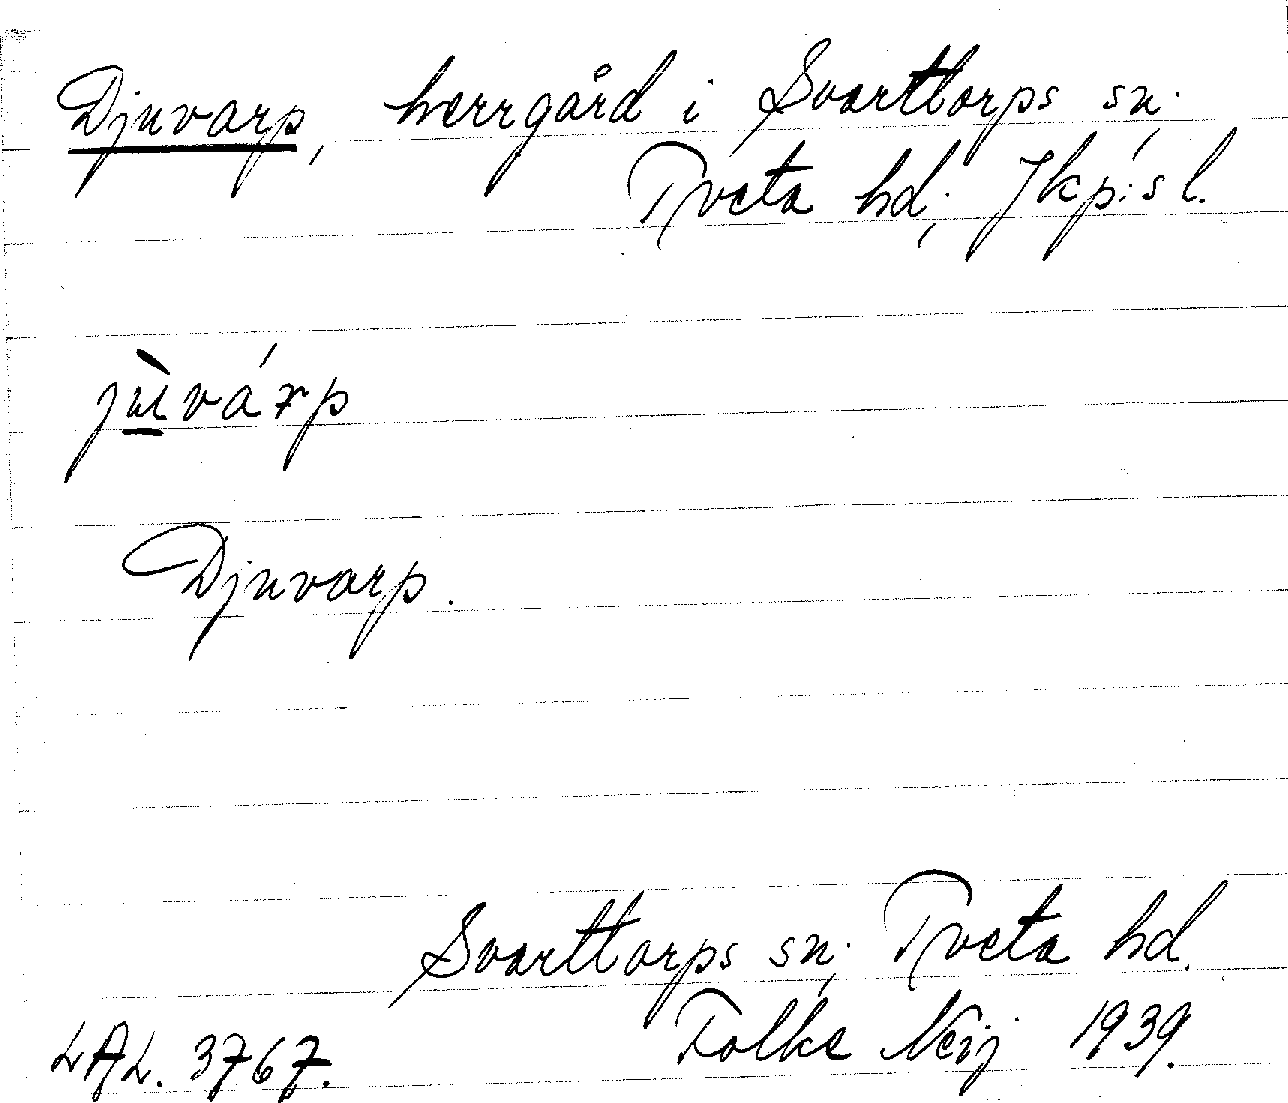 Djuvarp, herrgård i Svarttorps sn;
Tveta hd; Jkp:s l.
jùvárp
Djuvarp.
Svarttorps sn; Tveta hd.
LAL. 3767. Folke Neij 1939.